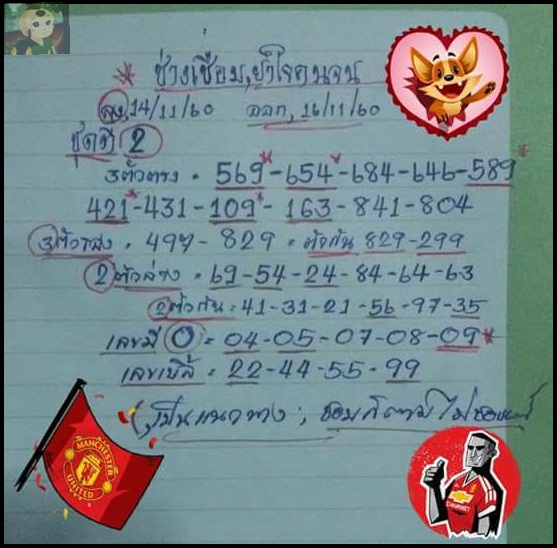 * ช่างเชื่อม,ขวัญใจคนจน
ลง,14/11/60 ออก,16/11/60
ชุดที่ 2
3ตัวตรง. 569*-654*-684-646-589*
421*-431-109*-163-841-804
3ตัวล่าง. 497-829=ตัวกัน 829-299
2ตัวล่าง. 69-54-24-84-64-63
2ตัวกัน: 41-31-21-56-97-35
เลขมี 0 = 04-05-07-08-09*
เลขเบิ้ล = 22-44-55-99
เป็นแนวทาง; ชอบก็ตามไม่ชอบ
MANCHESTER
UNITED
CHEVROLET